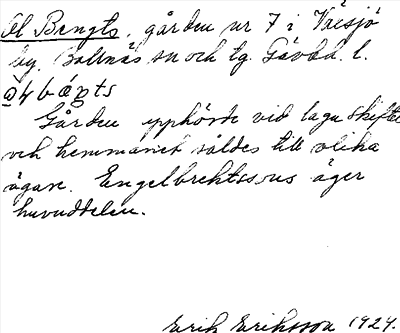 Ol Bengts, gården nr 7 i Växsjö
by. Bollnäs sn och tg. Gävleb. l.
ω4 bάpts
Gården upphörde vid laga skifte
och hemmanet såldes till olika
ägare. Engelbrektssons äger
huvuddelen.
Erik Eriksson 1924.